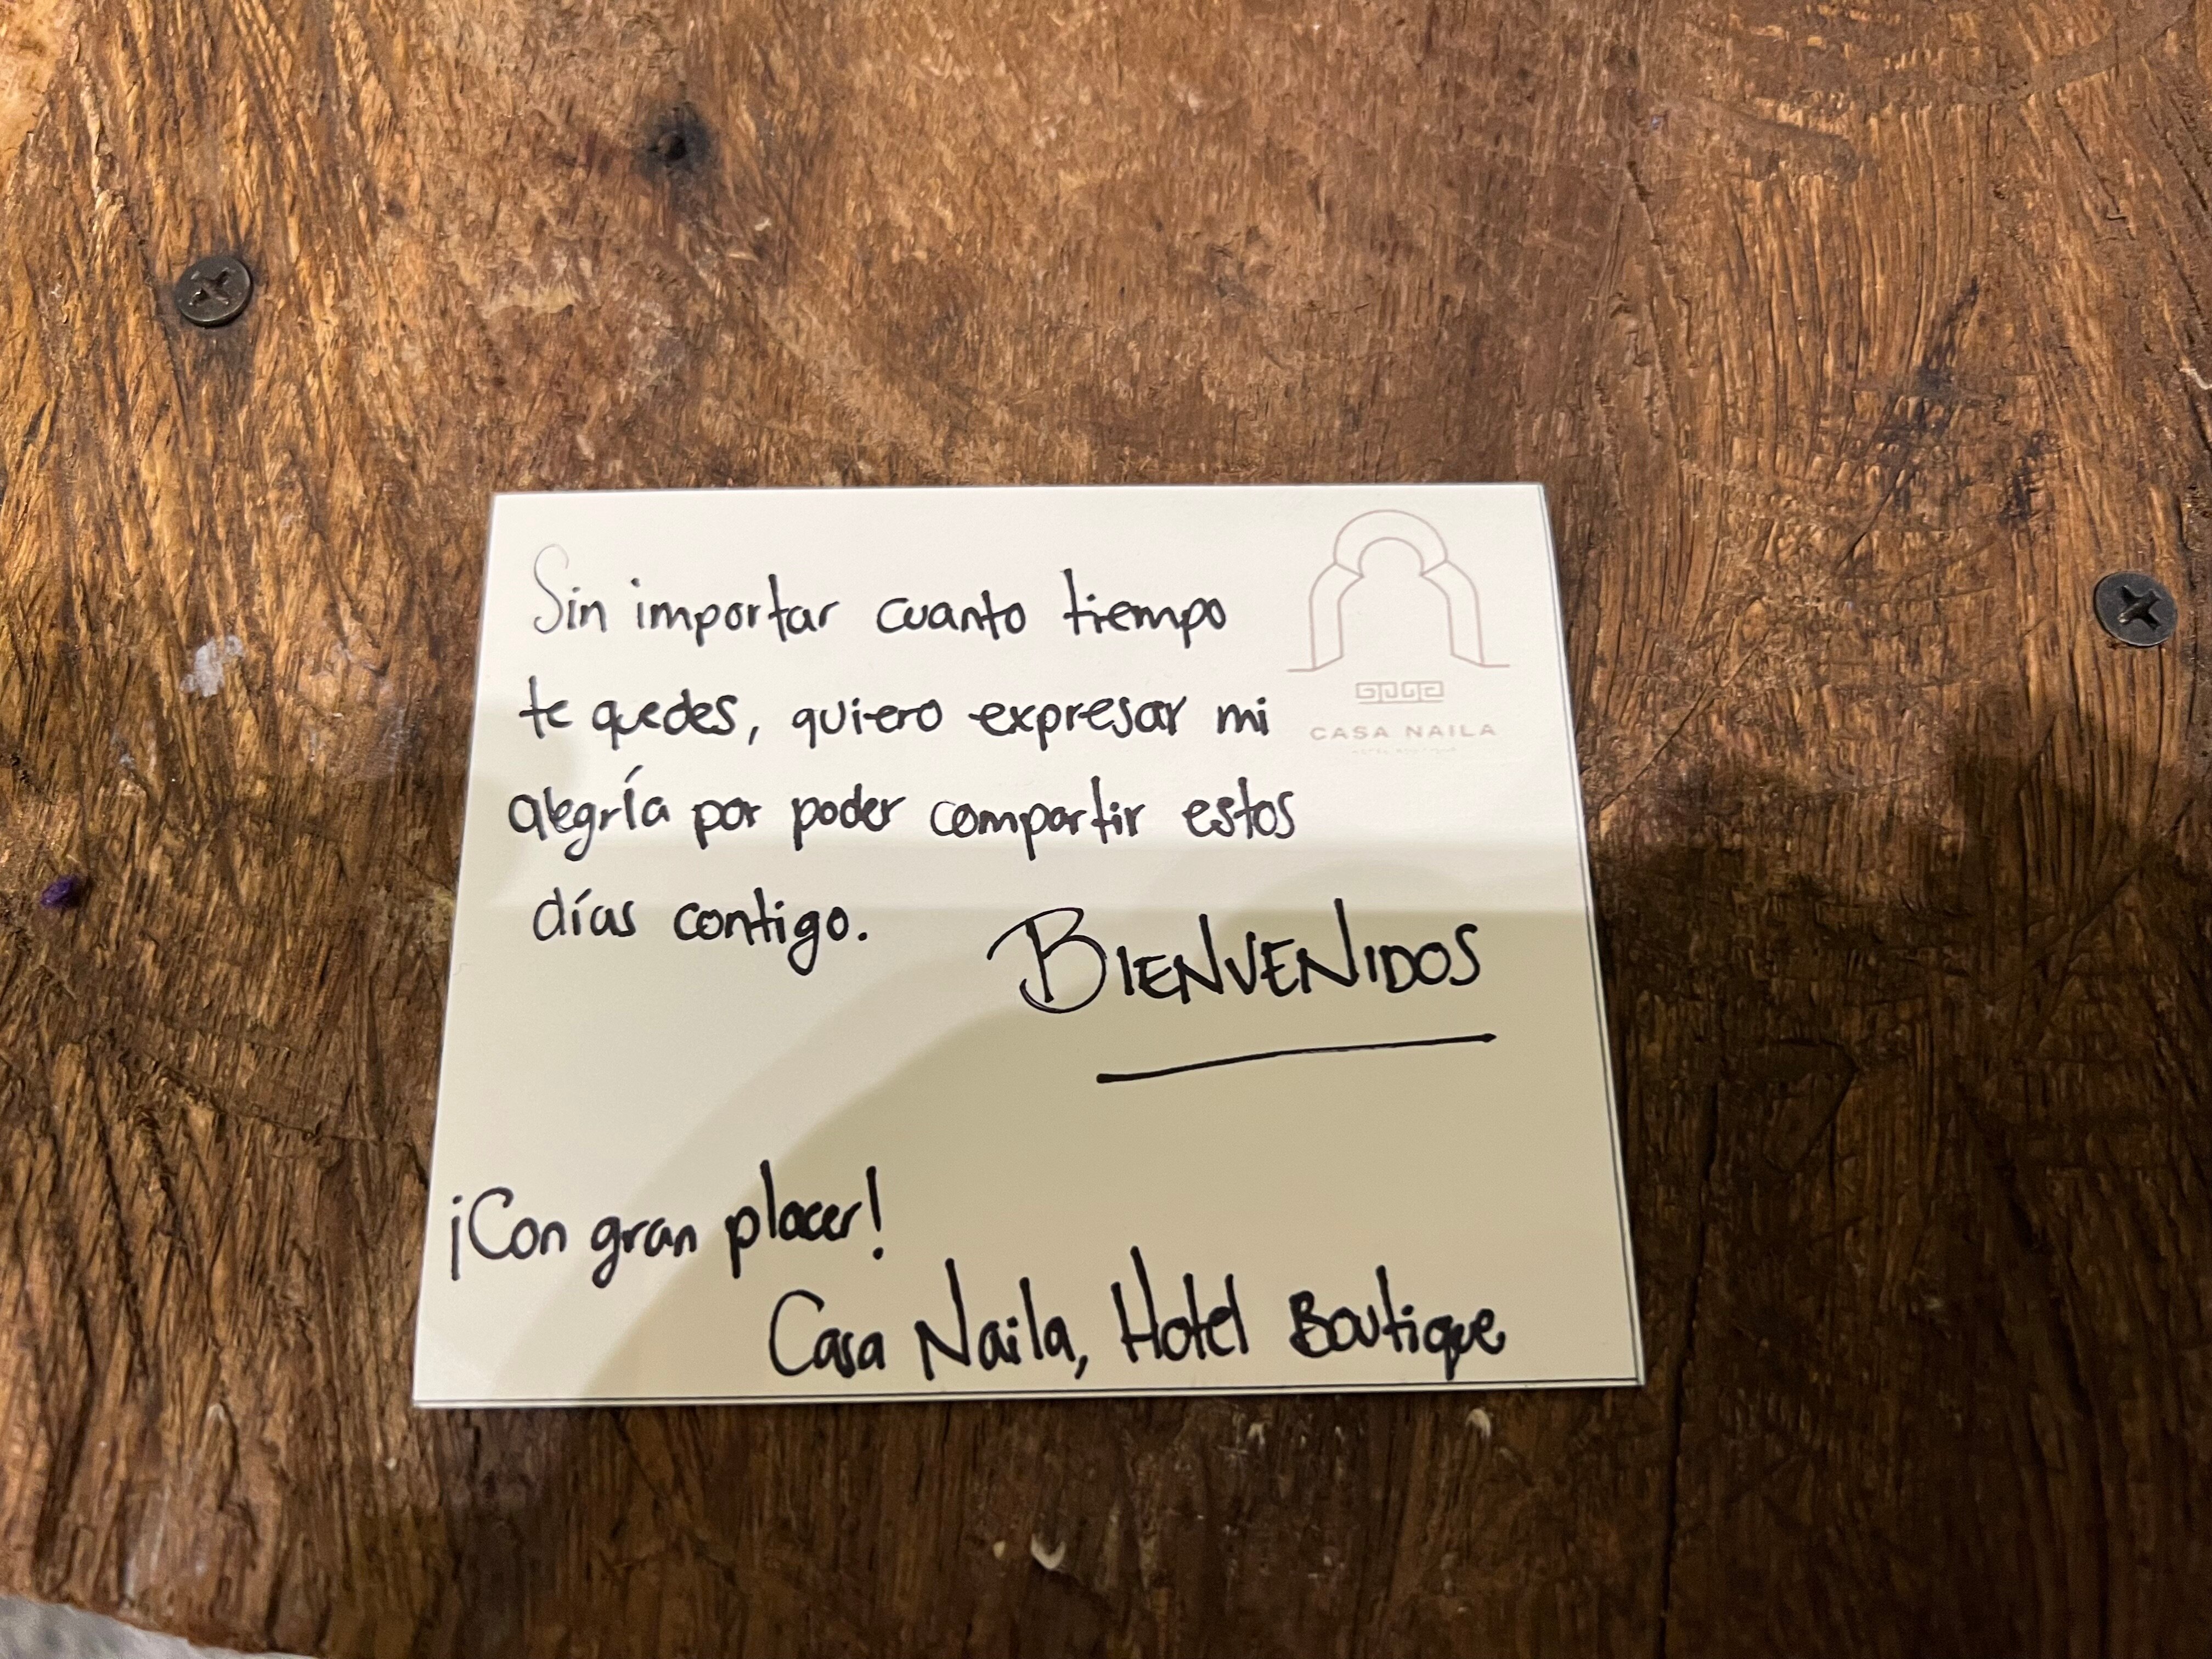 Sin importar cuanto tiempo
te quedes, quiero expresar mi
alegría por poder compartir estos
días contigo.
BIENVENIDOS
¡Con gran placer!
Casa Naila, Hotel Boutique
CASA NAILA